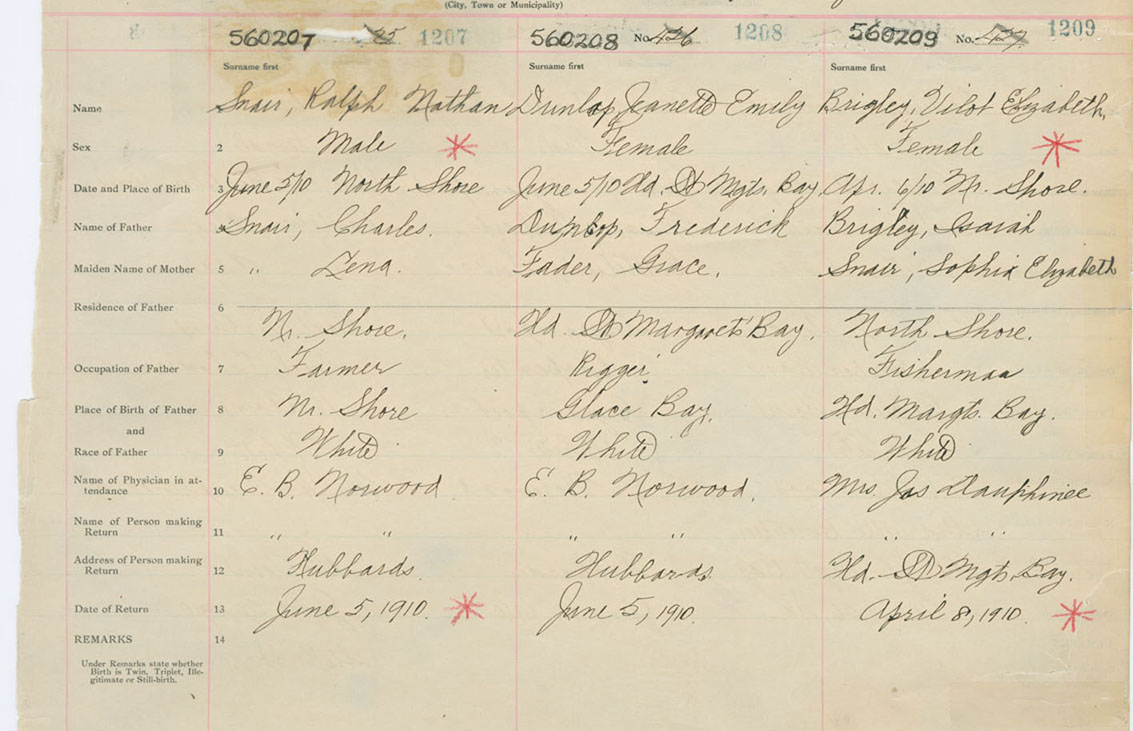 (City, Town or Municipality)
560207 85 1207 560208 No. 426 1208 560209 No. 427 1209
Surname first Surname first Surname first
Name Snair, Ralph Nathan Dunlop, Jeanette Emily Brigley, Vilot Elizabeth,
Sex 2 Male Female Female
Date and Place of Birth 3 June 5/10 North Shore June 5/10 Hd. St Mgts. Bay Apr. 6/10 Nr. Shore.
Name of Father 4 Snair, Charles. Dunlop, Frederick Brigley, Isaiah
Maiden Name of Mother 5 " Lena. Fader, Grace, Snair, Sophia Elizabeth
Residence of Father 6
Nr. Shore. Hd St Margarets Bay. North Shore.
Occupation of Father 7 Farmer Rigger Fisherman
Place of Birth of Father 8 Nr. Shore Glace Bay. Hd. Margts. Bay.
and
Race of Father 9 White White White
Name of Physician in at-
tendance 10 E. B. Norwood. E. B. Norwood. Mrs. Jas Dauphinee
Name of Person making
Return 11 " " " " " "
Address of Person making
Return 12 Hubbards. Hubbards Hd. St Mgts. Bay.
Date of Return 13 June 5, 1910. June 5, 1910. April 8, 1910.
REMARKS 14
Under Remarks state whether
Birth is Twin, Triplet, Ille-
gitimate or Still-birth.